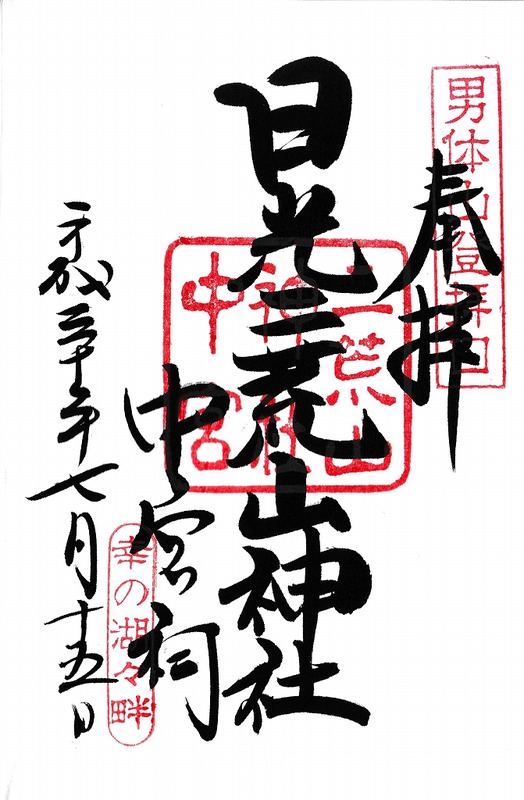 奉拝
男体山登拝口
日光二荒山神社
二荒山
神社
中宮
中宮祠
幸の湖々畔
平成三十年七月十五日